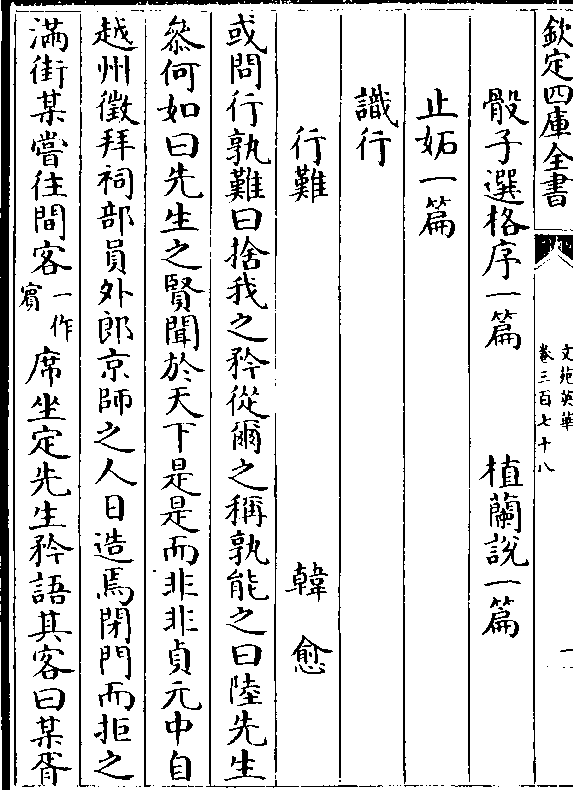 欽定四庫全書
文苑英華
卷三百七十八
一
骰子選格序一篇 植蘭說一篇
止妬一篇
識行
行難 韓愈
或問行孰難曰捨我之矜從爾之稱孰能之曰陸先生
叅何如曰先生之賢聞於天下是是而非非貞元中自
越州徵拜祠部員外郎京師之人日造焉閉門而拒之
滿街某嘗徃間客一作賔席坐定先生矜語其客曰某胥